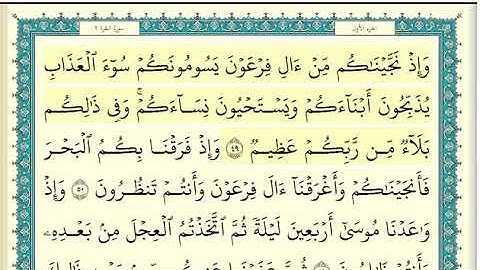 الجزء الأول
سورة البقرة ٢
وَإِذْ نَجَّيْنَٰكُم مِّنْ ءَالِ فِرْعَوْنَ يَسُومُونَكُمْ سُوٓءَ ٱلْعَذَابِ
يُذَبِّحُونَ أَبْنَآءَكُمْ وَيَسْتَحْيُونَ نِسَآءَكُمْ ۚ وَفِى ذَٰلِكُم
بَلَآءٌ مِّن رَّبِّكُمْ عَظِيمٌ ٤٩ وَإِذْ فَرَقْنَا بِكُمُ ٱلْبَحْرَ
فَأَنجَيْنَٰكُمْ وَأَغْرَقْنَآ ءَالَ فِرْعَوْنَ وَأَنتُمْ تَنظُرُونَ ٥٠ وَإِذْ
وَٰعَدْنَا مُوسَىٰٓ أَرْبَعِينَ لَيْلَةً ثُمَّ ٱتَّخَذْتُمُ ٱلْعِجْلَ مِنۢ بَعْدِهِۦ